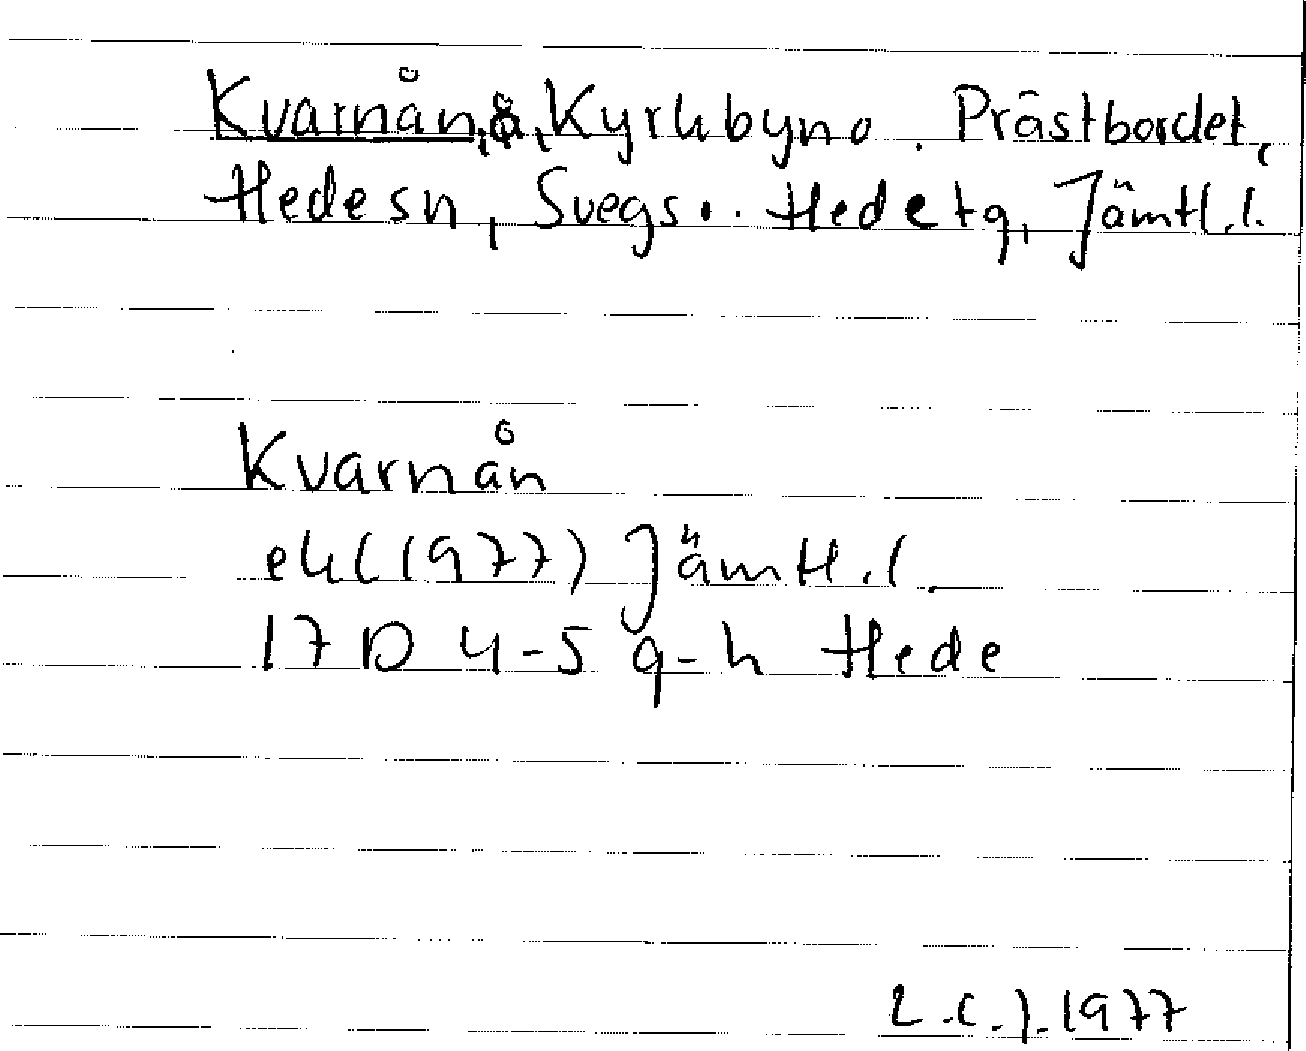 Kvarnån, å, Kyrkbyn o. Prästbordet,
Hede sn, Svegs o. Hede tg, Jämtl. l.
Kvarnån
ek (1977) Jämtl. l.
17D 4-5 g-h Hede
L.C.J. 1977